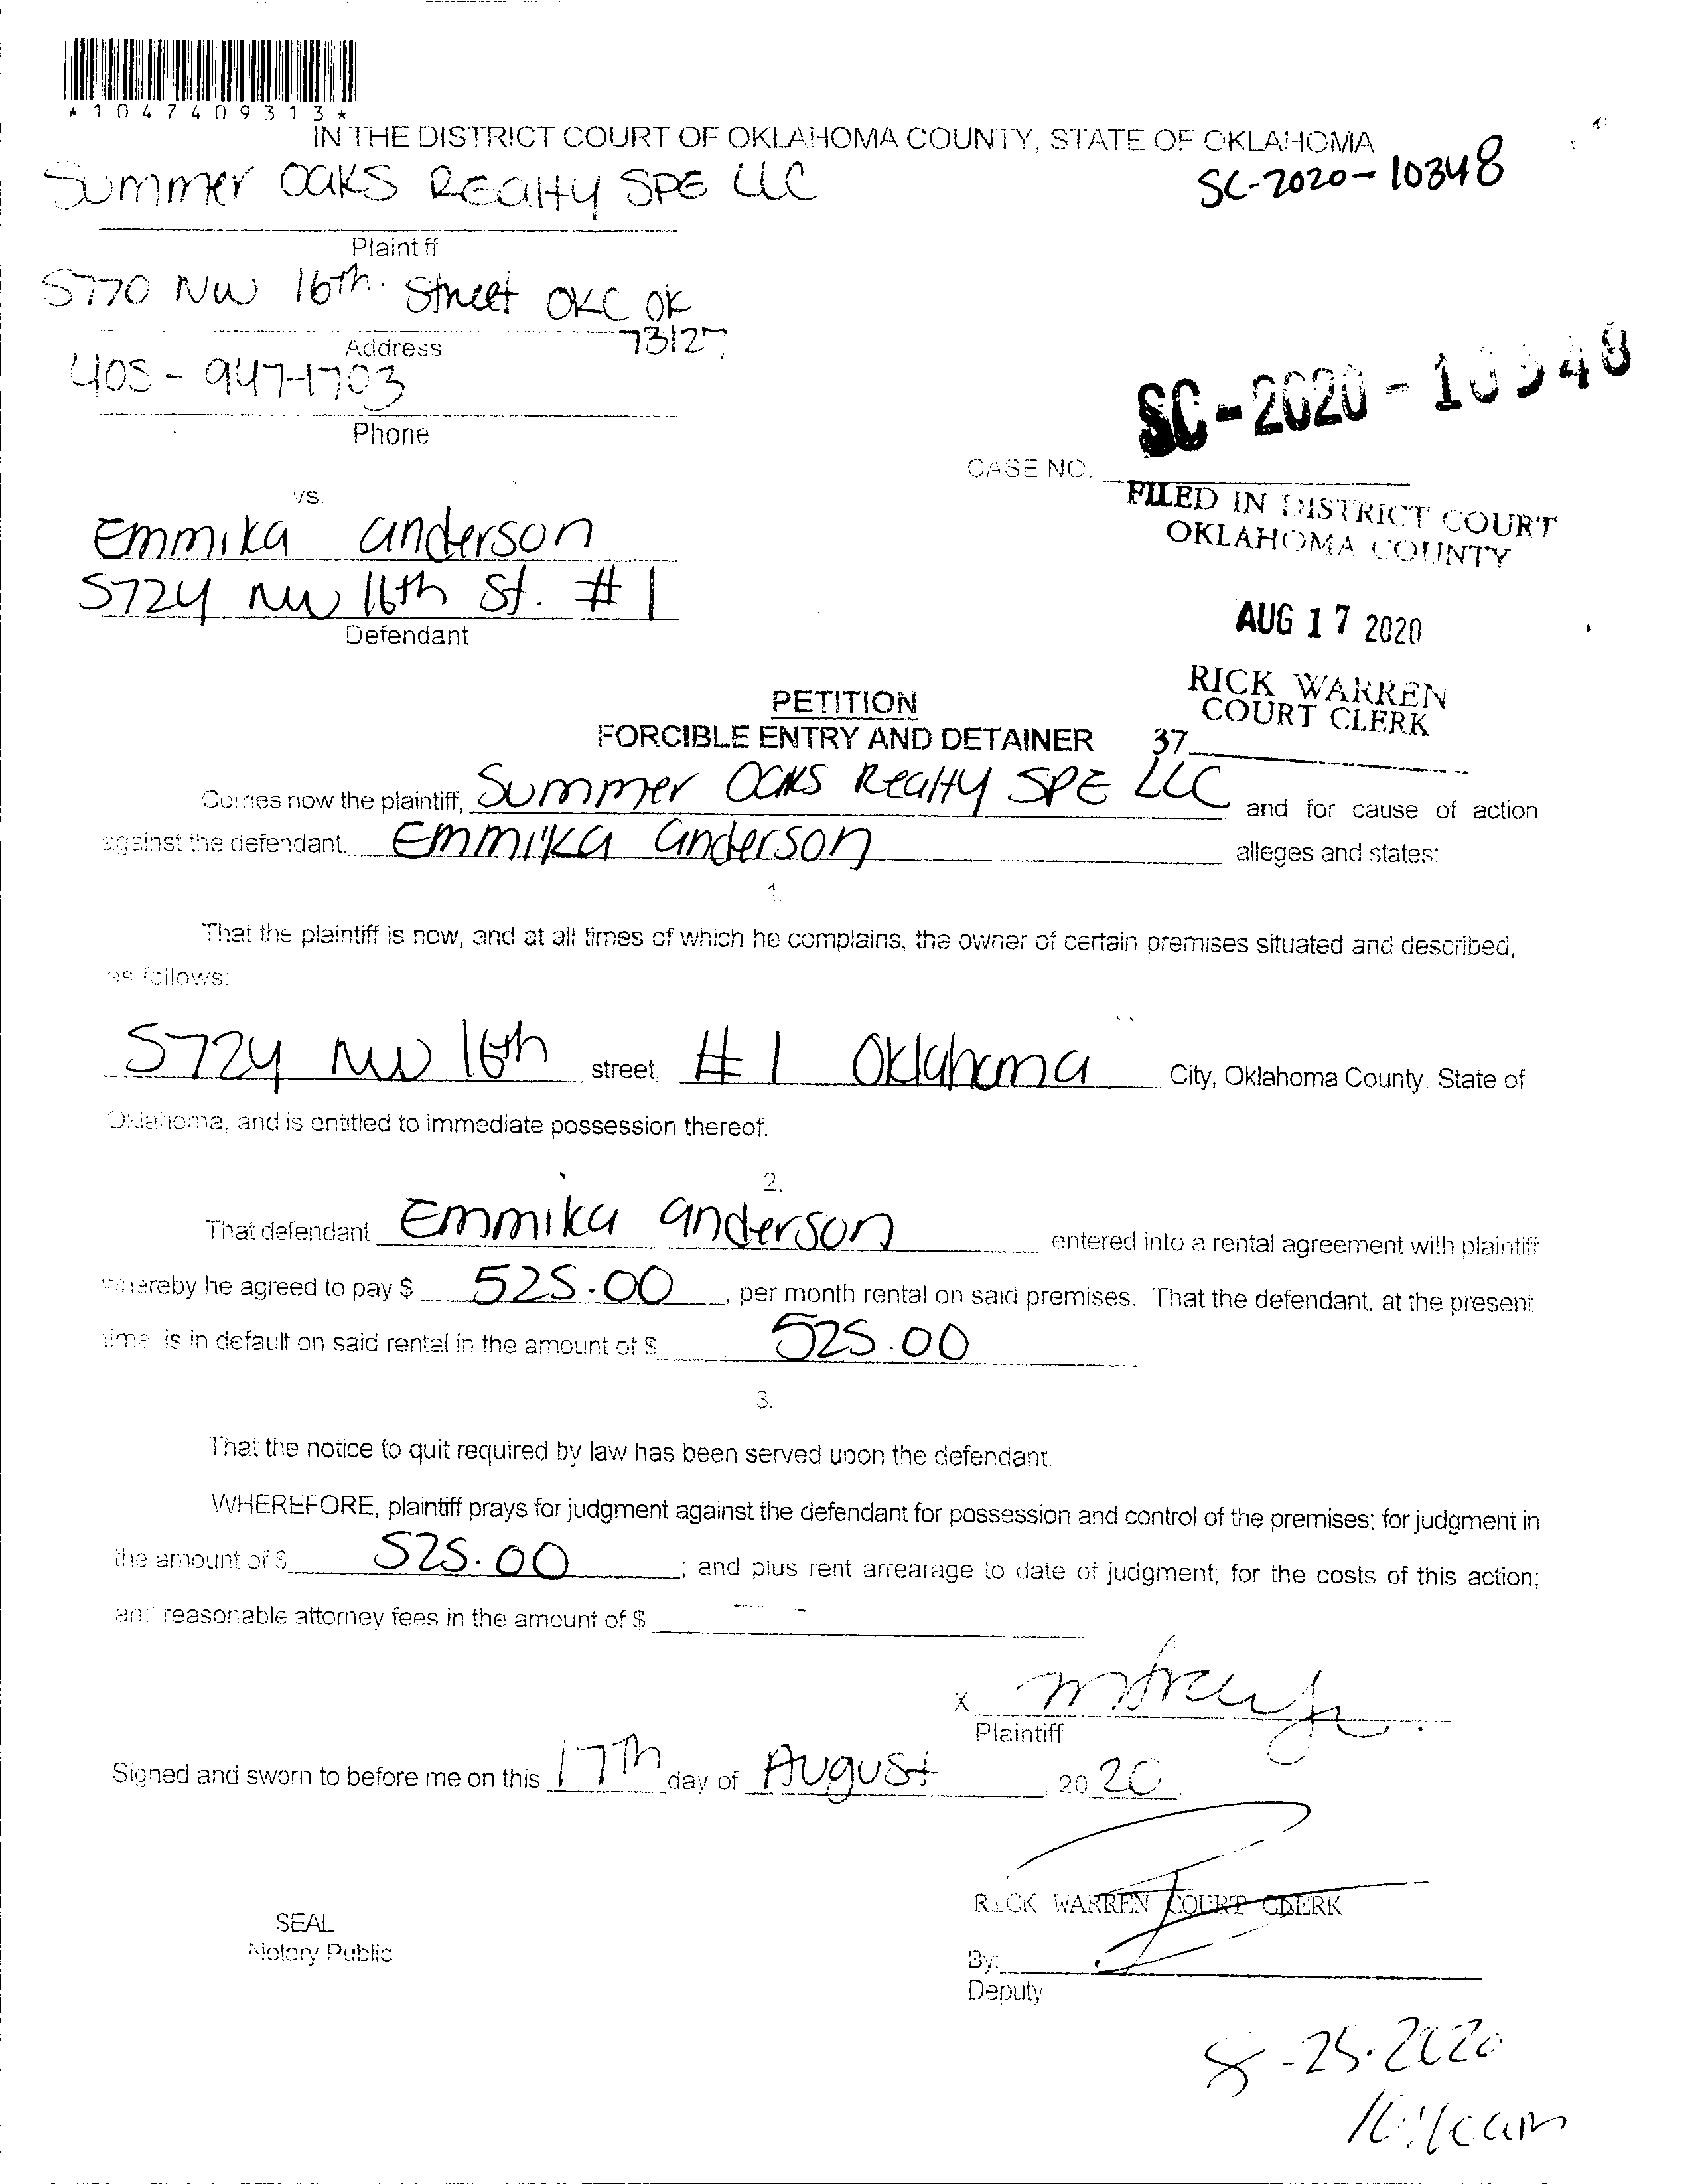 *1047409313*
IN THE DISTRICT COURT OF OKLAHOMA COUNTY, STATE OF OKLAHOMA
Summer Oaks Realty SPE LLC
SC-2020-10348
Plaintiff
5770 NW 16th. Street OKC OK
73127
Address
405-947-1703
Phone
SC-2020-10348
CASE NO.
vs.
FILED IN DISTRICT COURT
OKLAHOMA COUNTY
Emmika anderson
5724 NW 16th St. #1
Defendant
AUG 17 2020
RICK WARREN
COURT CLERK
37
PETITION
FORCIBLE ENTRY AND DETAINER
Comes now the plaintiff, Summer Oaks Realty SPE LLC, and for cause of action
against the defendant, Emmika anderson alleges and states:
1.
That the plaintiff is now, and at all times of which he complains, the owner of certain premises situated and described,
as follows:
5724 NW 16th street, #1 Oklahoma City, Oklahoma County, State of
Oklahoma, and is entitled to immediate possession thereof.
2.
That defendant Emmika anderson entered into a rental agreement with plaintiff
whereby he agreed to pay $ 525.00, per month rental on said premises. That the defendant, at the present
time is in default on said rental in the amount of $ 525.00
3.
That the notice to quit required by law has been served upon the defendant.
WHEREFORE, plaintiff prays for judgment against the defendant for possession and control of the premises; for judgment in
the amount of $ 525.00; and plus rent arrearage to date of judgment; for the costs of this action;
and reasonable attorney fees in the amount of $
X
Plaintiff
Signed and sworn to before me on this 17th day of August, 2020.
RICK WARREN COURT CLERK
SEAL
Notary Public
By:
Deputy
8-25-2020